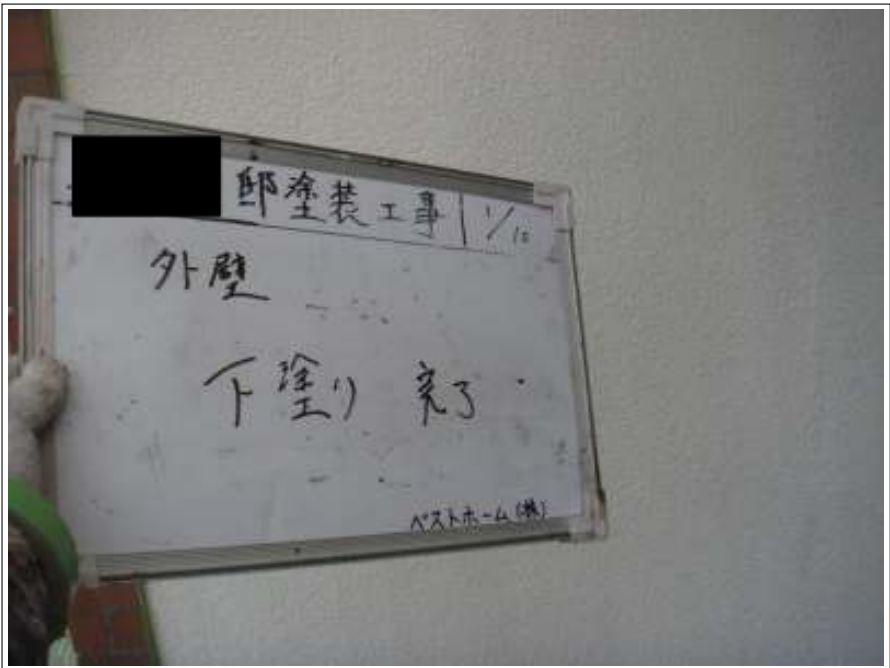 邸塗装工事 1/10
外壁
下塗り 完了
ベストホーム(株)